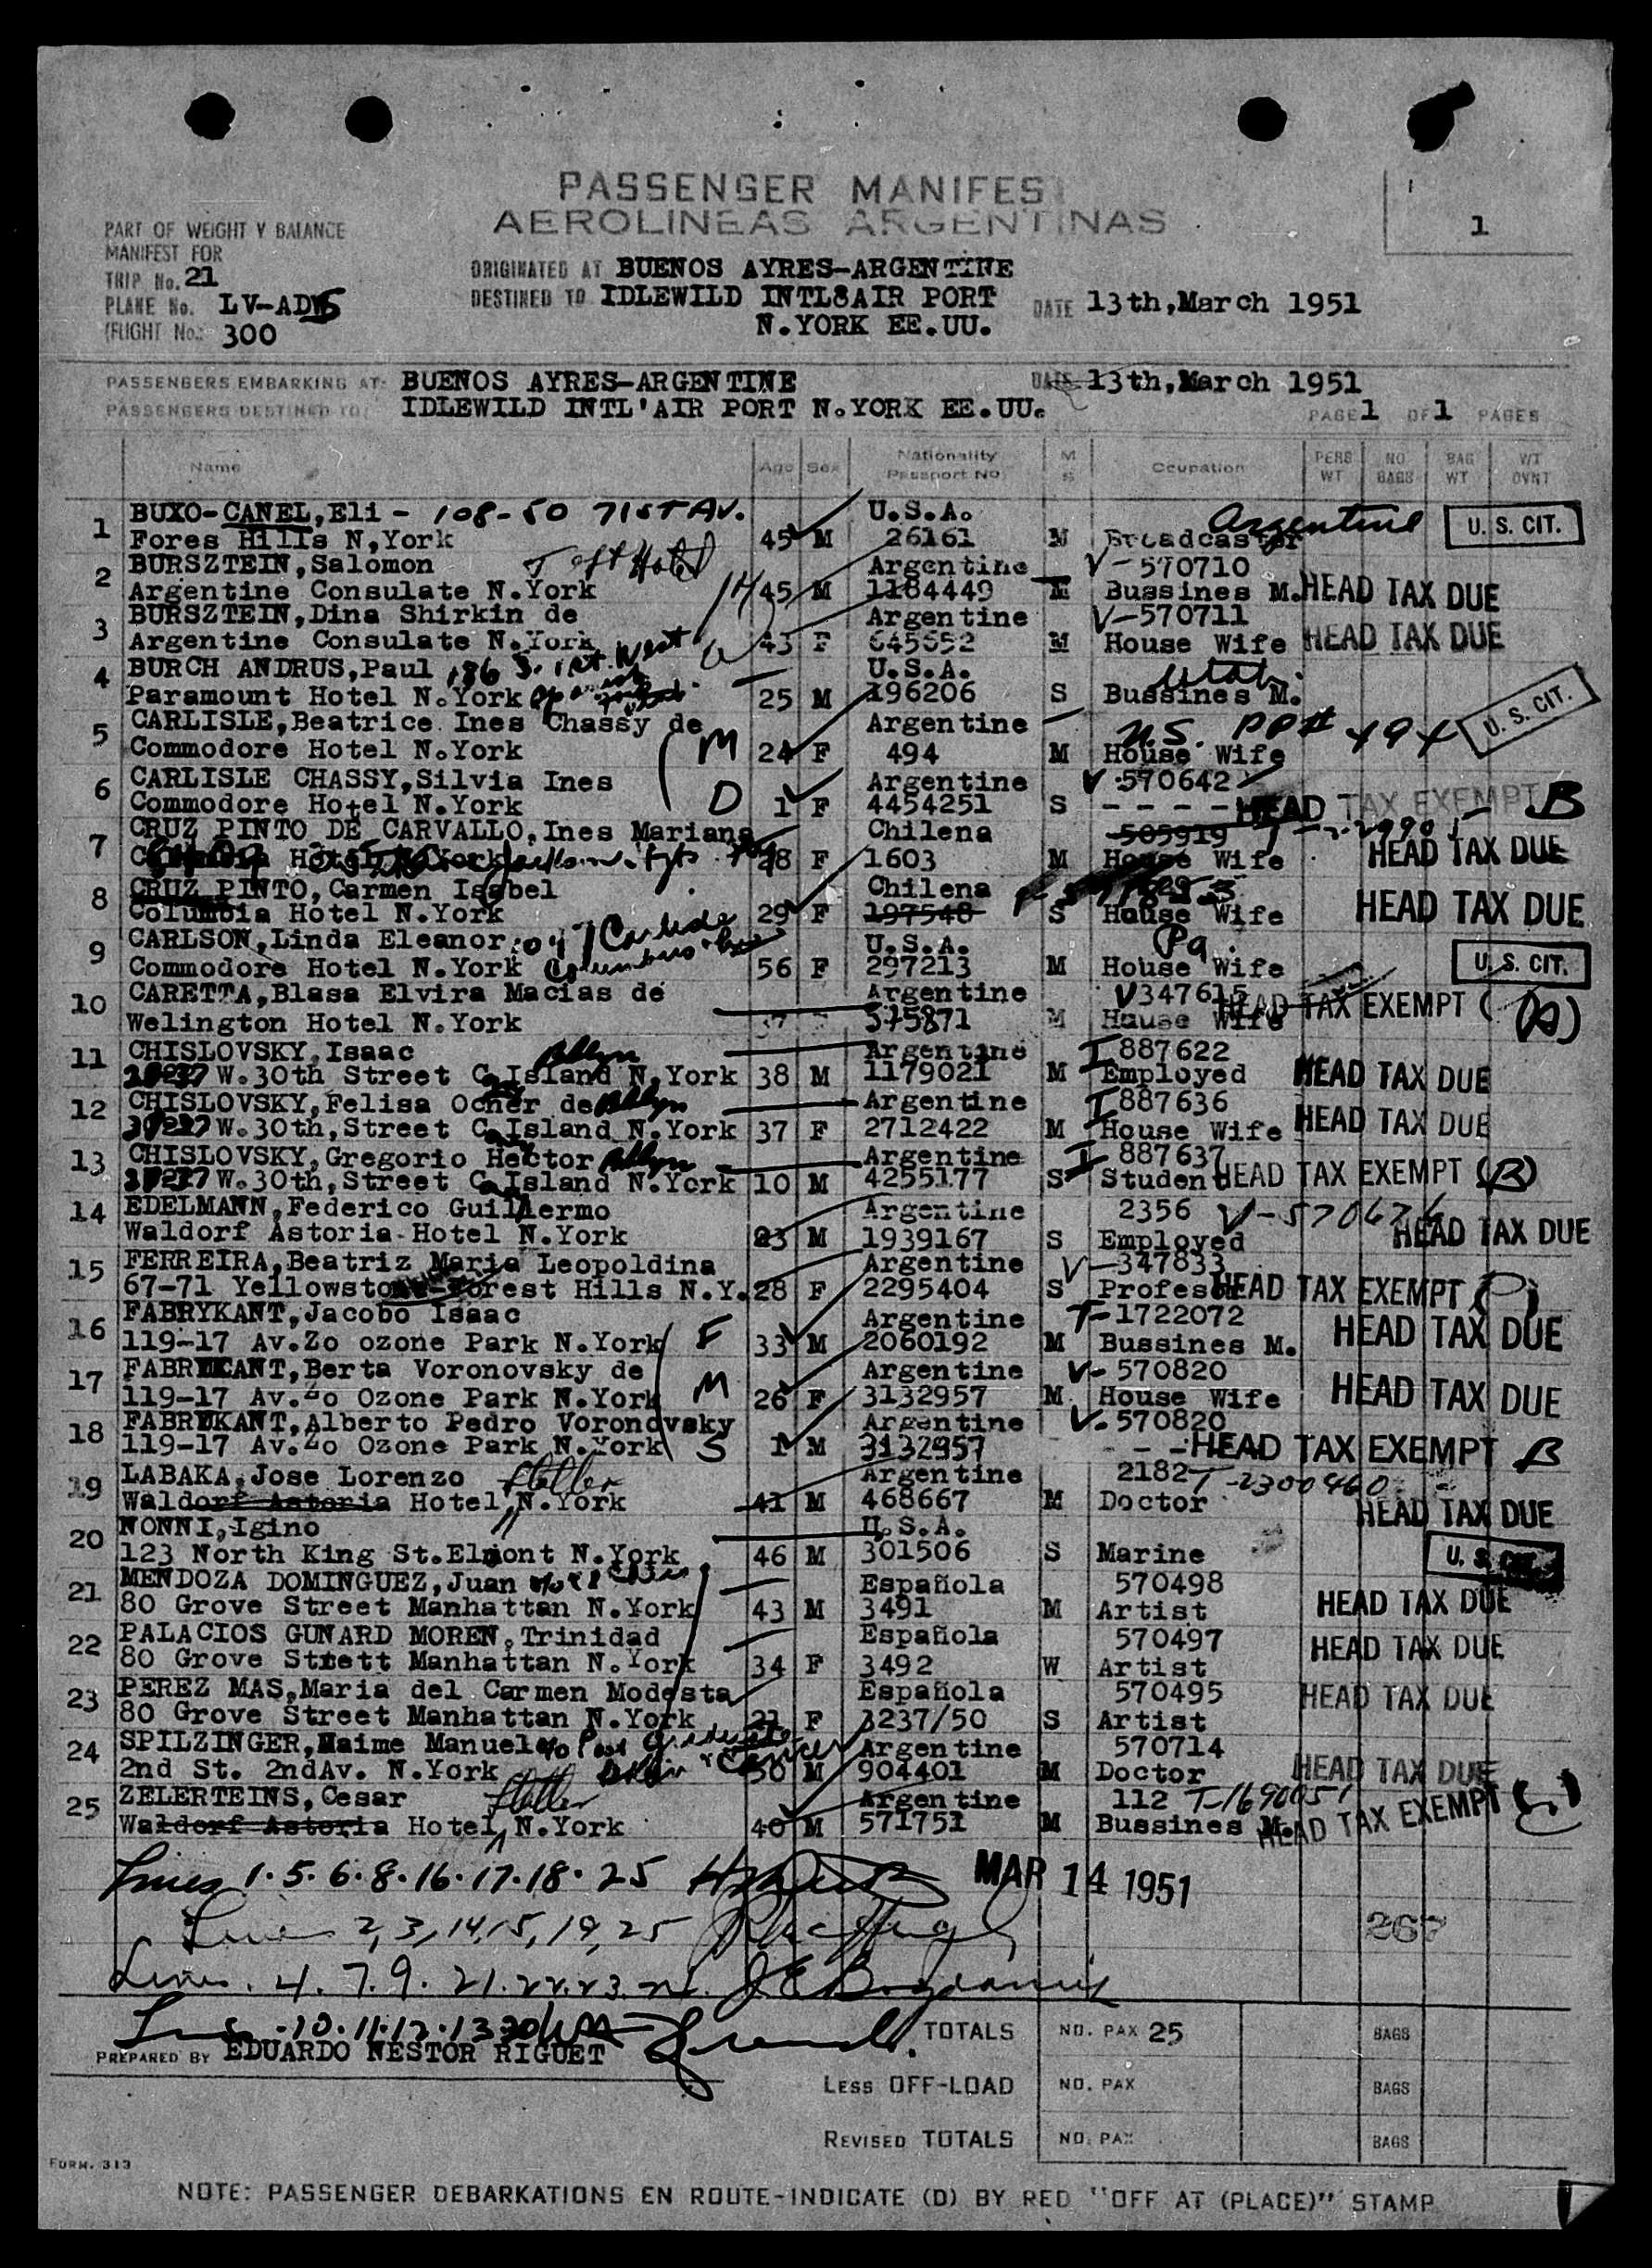 PASSENGER MANIFEST
AEROLINEAS ARGENTINAS
1
PART OF WEIGHT Y BALANCE
MANIFEST FOR
TRIP No. 21
PLANE No. LV-AD
FLIGHT No. 300
ORIGINATED AT BUENOS AYRES-ARGENTINE
DESTINED TO IDLEWILD INTL8AIR PORT
N.YORK EE.UU.
DATE 13th,March 1951
PASSENGERS EMBARKING AT: BUENOS AYRES-ARGENTINE DATE 13th,March 1951
PASSENGERS DESTINED TO: IDLEWILD INTL'AIR PORT N.YORK EE.UU.
PAGE 1 OF 1 PAGES
Name Age Sex Nationality Passport No M S Ocupation PERS WT NO BAGS BAG WT WT OVNT
1 BUXO-CANEL,Eli - 108-50 71ST AV. U.S.A. Argentine U. S. CIT.
Fores Hills N,York 45 M 26161 M Broadcaster
2 BURSZTEIN,Salomon Taft Hotel Argentine V-570710
Argentine Consulate N.York 45 M 1184449 M Bussines M. HEAD TAX DUE
3 BURSZTEIN,Dina Shirkin de Argentine V-570711
Argentine Consulate N.York 43 F 645652 M House Wife HEAD TAX DUE
4 BURCH ANDRUS,Paul U.S.A. Utah
Paramount Hotel N.York 25 M 196206 S Bussines M. U. S. CIT.
5 CARLISLE,Beatrice Ines Chassy de Argentine U.S. PP# 494
Commodore Hotel N.York M 24 F 494 M House Wife
6 CARLISLE CHASSY,Silvia Ines Argentine V 570642
Commodore Hotel N.York D 1 F 4454251 S - - - - HEAD TAX EXEMPT B
7 CRUZ PINTO DE CARVALLO,Ines Mariana Chilena 505919
Hotel 28 F 1603 M House Wife HEAD TAX DUE
8 CRUZ PINTO, Carmen Isabel Chilena
Columbia Hotel N.York 29 F 197548 S House Wife HEAD TAX DUE
9 CARLSON,Linda Eleanor U.S.A. Pa.
Commodore Hotel N.York 56 F 297213 M House Wife U. S. CIT.
10 CARETTA,Blasa Elvira Macias de Argentine V347615
Welington Hotel N.York 575871 M House Wife HEAD TAX EXEMPT
11 CHISLOVSKY,Isaac Argentine T 887622
W.30th Street C. Island N.York 38 M 1179021 M Employed HEAD TAX DUE
12 CHISLOVSKY,Felisa Ocher de Argentine T 887636
W.30th,Street C. Island N.York 37 F 2712422 M House Wife HEAD TAX DUE
13 CHISLOVSKY,Gregorio Hector Argentine T 887637
W.30th,Street C. Island N.York 10 M 4255177 S Student HEAD TAX EXEMPT (B)
14 EDELMANN,Federico Guillermo Argentine 2356
Waldorf Astoria Hotel N.York 23 M 1939167 S Employed HEAD TAX DUE
15 FERREIRA,Beatriz Maria Leopoldina Argentine V-347833
67-71 Yellowstone Forest Hills N.Y. 28 F 2295404 S HEAD TAX EXEMPT
16 FABRYKANT,Jacobo Isaac Argentine T-1722072
119-17 Av.Zo ozone Park N.York F 33 M 2060192 M Bussines M. HEAD TAX DUE
17 FABRYKANT,Berta Voronovsky de Argentine V-570820
119-17 Av.Zo Ozone Park N.York M 26 F 3132957 M House Wife HEAD TAX DUE
18 FABRYKANT,Alberto Pedro Voronovsky Argentine V-570820
119-17 Av.Zo Ozone Park N.York S 1 M 3132957 - - - HEAD TAX EXEMPT B
19 LABAKA,Jose Lorenzo Statler Argentine 2182 T-2300460
Waldorf Astoria Hotel N.York 41 M 468667 M Doctor HEAD TAX DUE
20 NONNI,Igino U.S.A.
123 North King St.Elmont N.York 46 M 301506 S Marine U. S. CIT.
21 MENDOZA DOMINGUEZ,Juan Española 570498
80 Grove Street Manhattan N.York 43 M 3491 M Artist HEAD TAX DUE
22 PALACIOS GUNARD MOREN,Trinidad Española 570497
80 Grove Strett Manhattan N.York 34 F 3492 W Artist HEAD TAX DUE
23 PEREZ MAS,Maria del Carmen Modesta Española 570495
80 Grove Street Manhattan N.York F 3237/50 S Artist HEAD TAX DUE
24 SPILZINGER,Naime Manuel Argentine 570714
2nd St. 2ndAv. N.York 30 M 904401 M Doctor HEAD TAX DUE
25 ZELERTEINS,Cesar Statler Argentine 112
Waldorf Astoria Hotel N.York 40 M 571751 M Bussines M. HEAD TAX EXEMPT
Lines 1.5.6.8.16.17.18.25
MAR 14 1951
Lines 2,3,14,15,19,25
267
Lines 4.7.9.21.22.23.24.
Lines 10.11.12.13.20
PREPARED BY EDUARDO NESTOR RIGUET
TOTALS NO. PAX 25 BAGS
LESS OFF-LOAD NO. PAX BAGS
REVISED TOTALS NO. PAX BAGS
FORM. 313
NOTE: PASSENGER DEBARKATIONS EN ROUTE-INDICATE (D) BY RED "OFF AT (PLACE)" STAMP